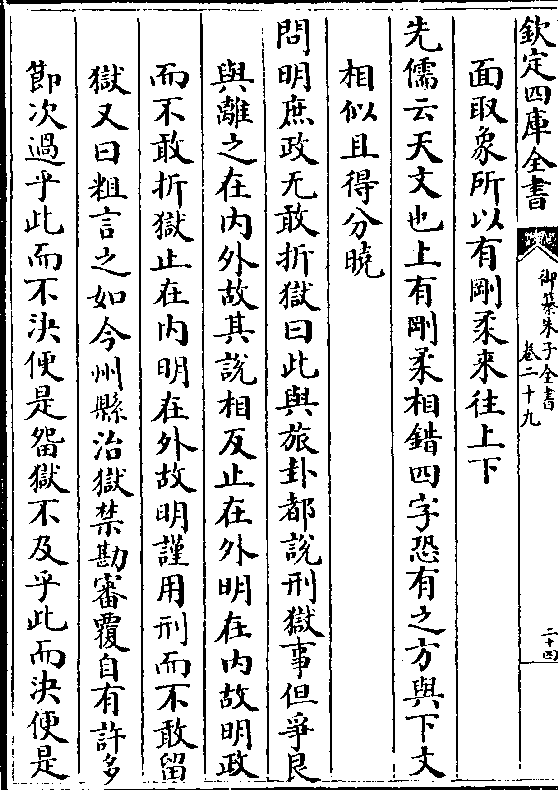 欽定四庫全書
御纂朱子全書
卷二十九
二十四
面取象所以有剛柔來往上下
先儒云天文也上有剛柔相錯四字恐有之方與下文
相似且得分曉
問明庶政无敢折獄曰此與旅卦都說刑獄事但爭艮
與離之在內外故其說相反止在外明在內故明政
而不敢折獄止在內明在外故明謹用刑而不敢留
獄又曰粗言之如今州縣治獄禁勘審覆自有許多
節次過乎此而不決便是留獄不及乎此而決便是